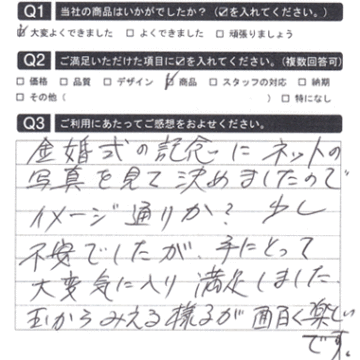 Q1 当社の商品はいかがでしたか？（☑を入れてください。）
☑ 大変よくできました □ よくできました □ 頑張りましょう
Q2 ご満足いただけた項目に☑を入れてください。（複数回答可）
□ 価格 □ 品質 □ デザイン ☑ 商品 □ スタッフの対応 □ 納期
□ その他（ ） □ 特になし
Q3 ご利用にあたってご感想をおよせください。
金婚式の記念にネットの
写真を見て決めましたので
イメージ通りか？少し
不安でしたが、手にとって
大変気に入り満足しました。
玉からみえる様子が面白く楽しい
です。